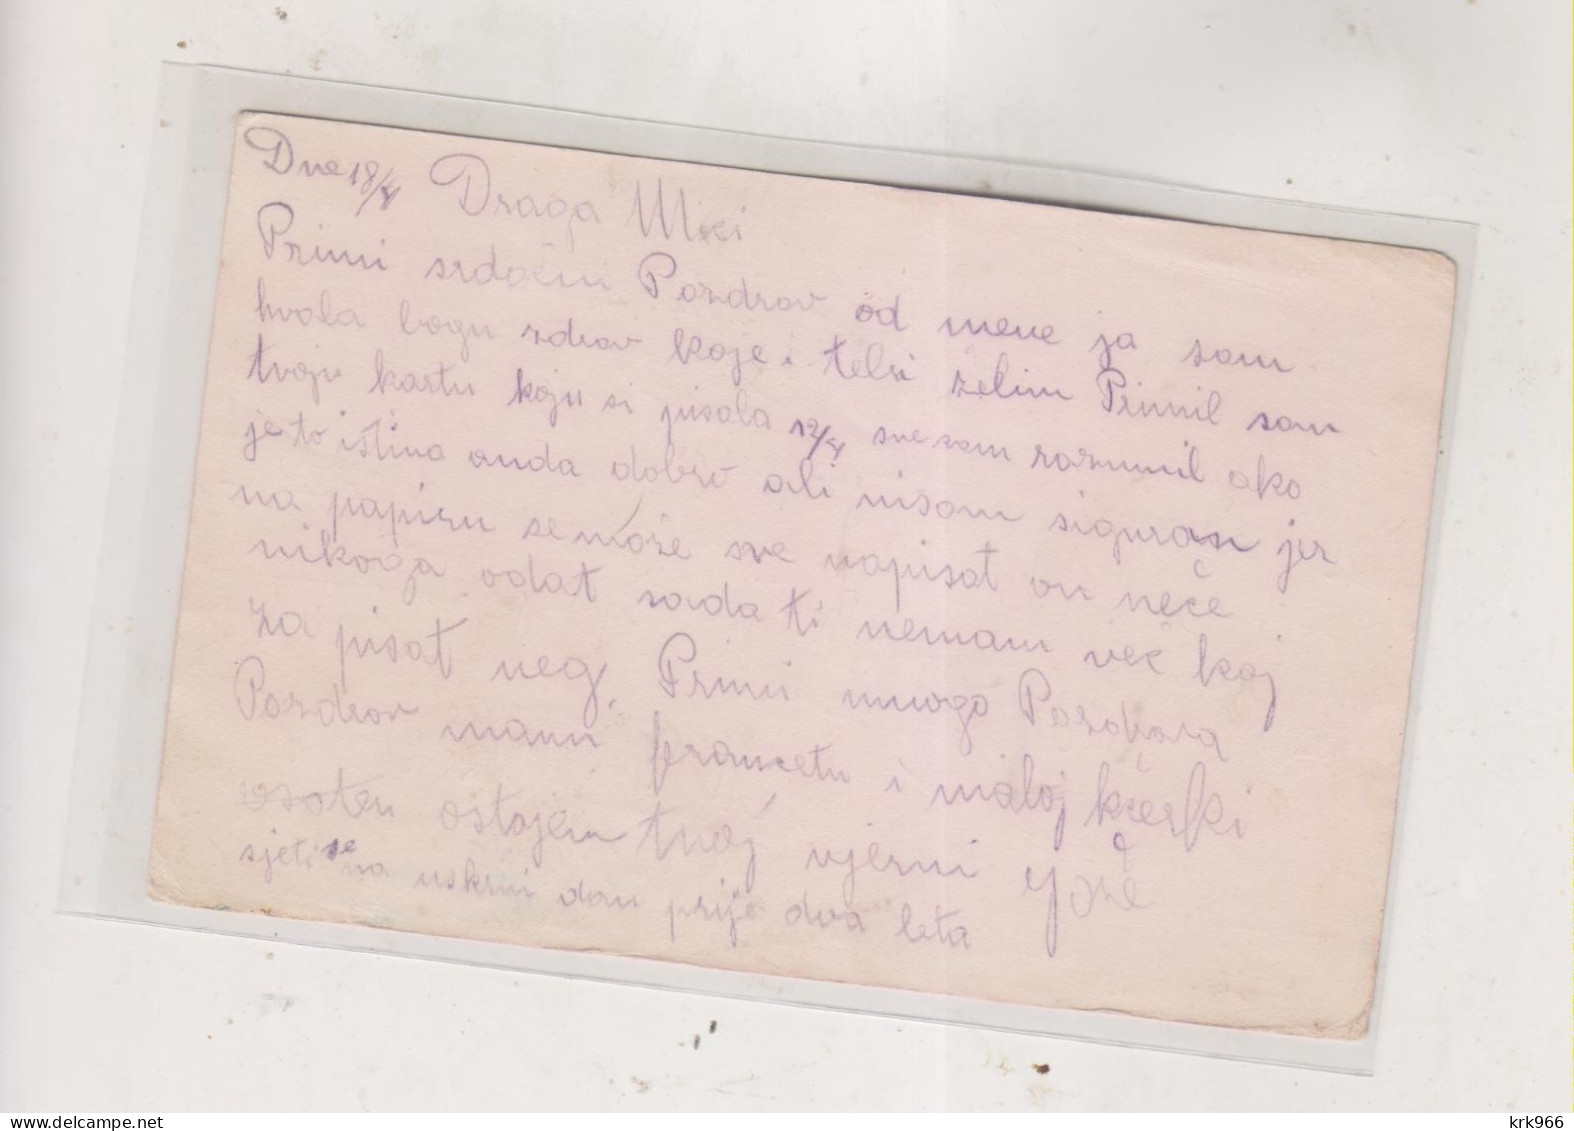 Dne 18/4 Draga Mici
Primi srdačni Pozdrav od mene ja sam
hvala bogu zdrav koje i tebi želim Primil sam
tvoju kartu koju si pisala 12/4 sve sam razumil ako
je to istina onda dobro ali nisam siguran jer
na papiru se može sve napisat on neče
nikoga odat sada ti nemam več koj
za pisat neg. Primi mnogo Pozdrava
Pozdrav mami francetu i maloj kčerki
ostajem tvoj vjerni Jože
sjeti se na uskrsni dan prije dva leta
krk966